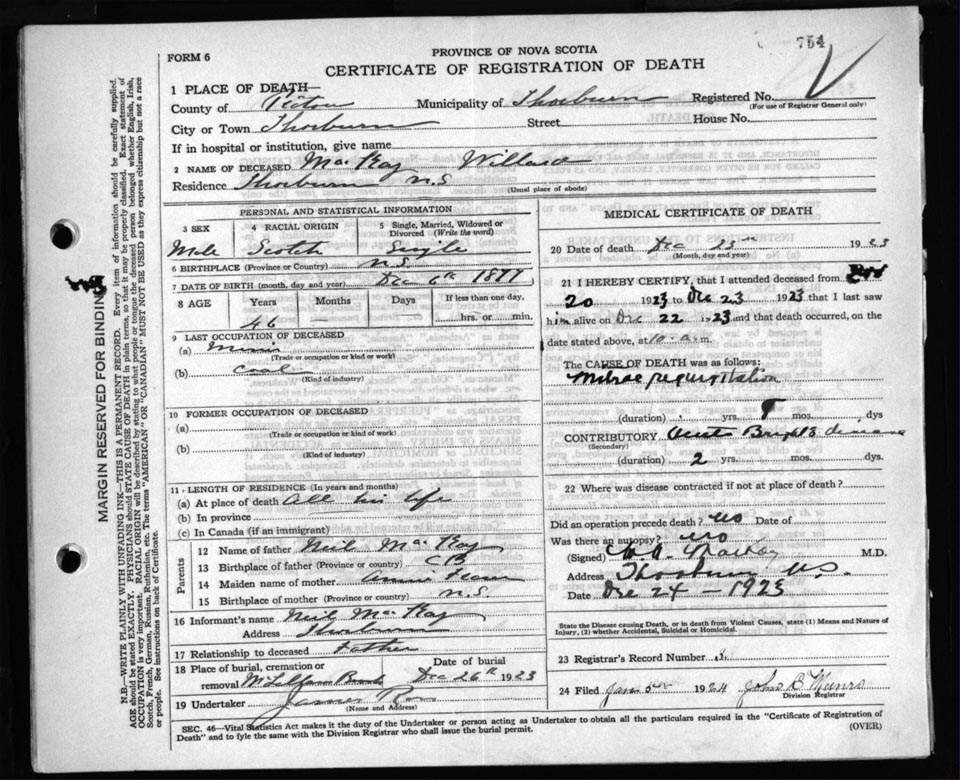 754
PROVINCE OF NOVA SCOTIA
FORM 6
CERTIFICATE OF REGISTRATION OF DEATH
1 PLACE OF DEATH—
County of Pictou Municipality of Thorburn Registered No.
(For use of Registrar General only)
City or Town Thorburn Street House No.
If in hospital or institution, give name
2 NAME OF DECEASED MacKay Willard
Residence Thorburn N.S.
(Usual place of abode)
PERSONAL AND STATISTICAL INFORMATION
3 SEX 4 RACIAL ORIGIN 5 Single, Married, Widowed or Divorced (Write the word)
Male Scotch Single
6 BIRTHPLACE (Province or Country) N.S.
7 DATE OF BIRTH (month, day and year) Dec 6th 1877
8 AGE Years Months Days If less than one day,
46 — — hrs. or min.
9 LAST OCCUPATION OF DECEASED
(a) Miner
(Trade or occupation or kind or work)
(b) Coal
(Kind of industry)
10 FORMER OCCUPATION OF DECEASED
(a)
(Trade or occupation or kind of work)
(b)
(Kind of industry)
11 LENGTH OF RESIDENCE (In years and months)
(a) At place of death All his life
(b) In province
(c) In Canada (if an immigrant)
Parents
12 Name of father Neil MacKay
13 Birthplace of father (Province or country) C B
14 Maiden name of mother Annie
15 Birthplace of mother (Province or country) N.S.
16 Informant's name Neil MacKay
Address Thorburn
17 Relationship to deceased Father
18 Place of burial, cremation or removal Date of burial
Dec 26th 1923
19 Undertaker James
(Name and Address)
MEDICAL CERTIFICATE OF DEATH
20 Date of death Dec 23rd 1923
(Month, day and year)
21 I HEREBY CERTIFY, that I attended deceased from
20 1923 to Dec 23 1923 that I last saw
him alive on Dec 22 1923 and that death occurred, on the
date stated above, at 10 a.m.
The CAUSE OF DEATH was as follows:
Mitrae regurgitation
(duration) yrs. mos. dys
CONTRIBUTORY Brights disease
(Secondary)
(duration) 2 yrs. mos. dys.
22 Where was disease contracted if not at place of death?
Did an operation precede death? No Date of
Was there an autopsy? No
(Signed) MacKay M.D.
Address Thorburn N.S.
Date Dec 24 — 1923
State the Disease causing Death, or in death from Violent Causes, state (1) Means and Nature of
Injury, (2) whether Accidental, Suicidal or Homicidal.
23 Registrar's Record Number
24 Filed Jan 5th 1924 John B Munro
Division Registrar
SEC. 46—Vital Statistics Act makes it the duty of the Undertaker or person acting as Undertaker to obtain all the particulars required in the "Certificate of Registration of
Death" and to fyle the same with the Division Registrar who shall issue the burial permit. (OVER)
MARGIN RESERVED FOR BINDING
N.B.—WRITE PLAINLY WITH UNFADING INK—THIS IS A PERMANENT RECORD. Every item of information should be carefully supplied.
AGE should be stated EXACTLY. PHYSICIANS should STATE CAUSE OF DEATH in plain terms, so that it may be properly classified. Exact statement of
OCCUPATION is very important. RACIAL ORIGIN will be described by stating to what people or tongue the deceased person belonged whether English, Irish,
Scotch, French, German, Russian, Ruthenian, etc. The terms "AMERICAN" OR "CANADIAN" MUST NOT BE USED as they express citizenship but not a race
or people. See instructions on back of Certificate.